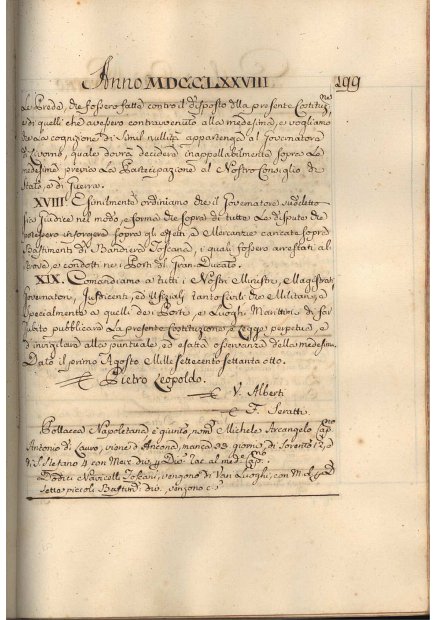 Anno MDCCLXXVIII 299
le Prede, che fossero fatte contro il disposto della presente Costituz.ne
e di quelli che avessero contravenuto alla medesima, e vogliamo
che la cognizione di simil nullità appartenga al Governatore
di Livorno, quale dovrà decidere inappellabilmente sopra la
medesima previa la Partecipazione al Nostro Consiglio di
Stato, e di Guerra.
XVIII E similmente ordiniamo che il Governatore suddetto
sia Giudice nel modo, e forma che sopra di tutte le dispute che
potessero insorgere sopra gli effetti, e Mercanzie caricate sopra
Bastimenti di Bandiera Toscana, i quali fossero arrestati al
trove, e condotti nei Porti del Gran-Ducato.
XIX. Comandiamo a tutti i Nostri Ministri, Magistrati
Governatori, Jusdicenti, ed Uffiziali tanto Civili che Militari, e
specialmente a quelli dei Porti, e Luoghi Marittimi di far
subito pubblicare la presente Costituzione, e Legge perpetua, e
d'invigilare alla puntuale, ed esatta osservanza della medesima.
Dato il primo Agosto Mille settecento settanta otto.
Pietro Leopoldo.
V. Alberti
F. Seratti
Pollacca Napoletana è giunta, nom.ta Michele Arcangelo Cap.no
Antonio di Lauro, viene d'Ancona, manca 39 giorni, di Sorento 12, e
di S. Stefano 4 con Merz. div.
Navicelli Toscani, vengono di Vari Luoghi, con
Sette piccoli Bastim.ti div. vengono